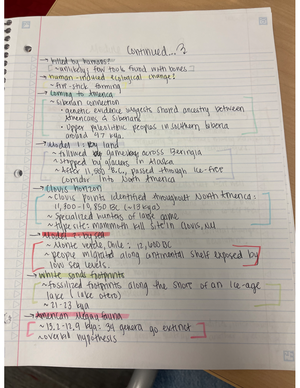 Continued...?
→ killed by humans?
~ unlikely; few tools found with bones
→ human-induced ecological change?
~ fire-stick farming
→ Coming to America
~ Siberian connection
· genetic evidence suggests shared ancestry between Americans & Siberians
· upper paleolithic peoples in southern Siberia around 47 kya.
→ Model 1: By land
~ followed game across Beringia
~ stopped by glaciers in Alaska
~ After 11,500 B.C., passed through ice-free corridor into North America
→ Clovis horizon
~ Clovis points identified throughout North America: 11,500-10,850 BC (~13 kya)
~ specialized hunters of large game
~ type site: mammoth kill site in Clovis, NM
→ Model 2: by sea
~ Monte Verde, Chile: 12,600 BC
~ people migrated along continental shelf exposed by low sea levels.
→ White Sands footprints
~ fossilized footprints along the shore of an ice-age lake (Lake Otero)
~ 21-23 kya
→ American Megafauna
~ 13.2-12.9 kya: 34 genera go extinct
~ overkill hypothesis